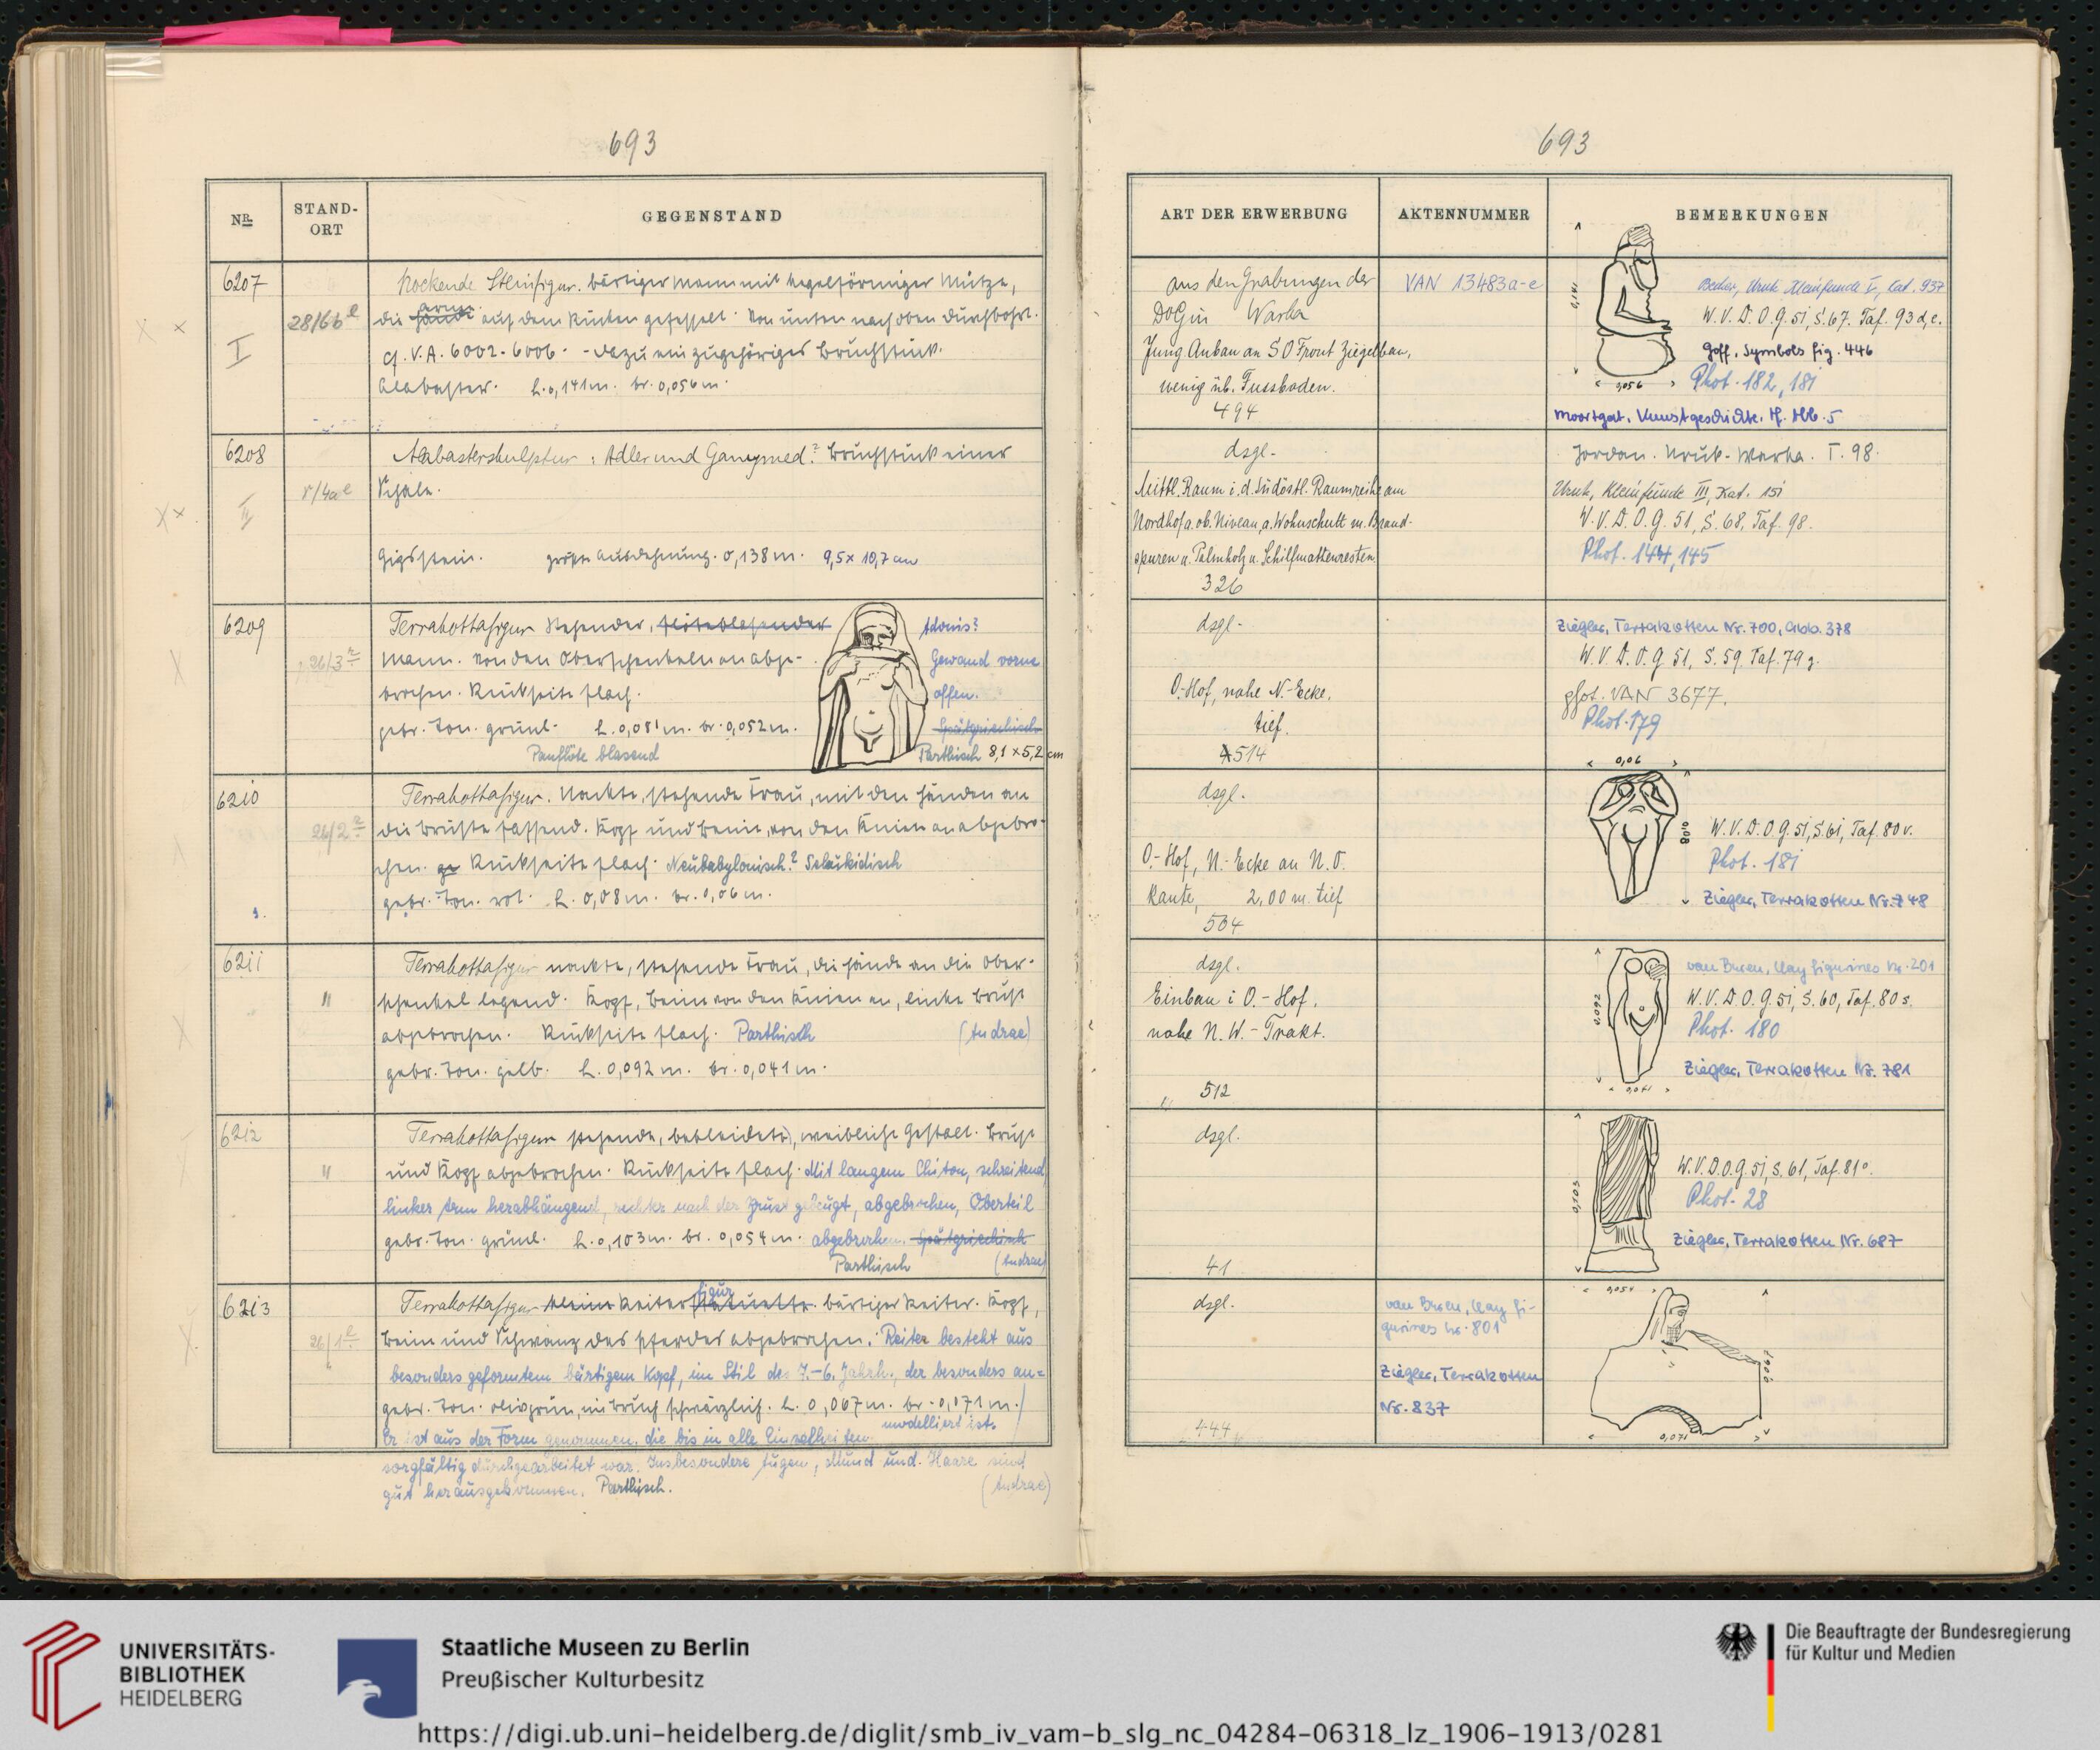 693
NR.
STAND-
ORT
GEGENSTAND
6207
I
28/6b l
Hockende Steinfigur. Bärtiger Mann mit kegelförmiger Mütze,
Arme
die Hände auf dem Rücken gefesselt. Von unten nach oben durchbohrt.
cf. V.A. 6002-6006. - Dazu ein zugehöriges Bruchstück.
Alabaster. h. 0,141m. br. 0,056m.
6208
II
Alabasterskulptur: Adler und Ganymed? Bruchstück einer
Schale.
Gipsstein. größte Ausdehnung. 0,138m. 9,5 x 10,7 cm
6209
26/3
Terrakottafigur Stehender, flöteblasender
Mann. Von den Oberschenkeln an abge-
brochen. Rückseite flach.
gebr. Ton. grünl. h. 0,081m. br. 0,052m.
Panflöte blasend
Adonis?
Gewand vorne
offen.
Spätgriechisch
Parthisch 8,1 x 5,2 cm
6210
26/2
Terrakottafigur. Nackte, stehende Frau, mit den Händen an
die Brüste fassend. Kopf und Beine, von den Knien an abgebro-
chen. Rückseite flach. Neubabylonisch? Seleukidisch
gebr. Ton. rot. h. 0,08m. br. 0,06m.
6211
"
Terrakottafigur nackte, stehende Frau, die Hände an die Ober-
schenkel legend. Kopf, Beine von den Knien an, linke Brust
abgebrochen. Rückseite flach. Parthisch (Andrae)
gebr. Ton. gelb. h. 0,092m. br. 0,041m.
6212
"
Terrakottafigur stehende, bekleidete, weibliche Gestalt. Brust
und Kopf abgebrochen. Rückseite flach. Mit langem Chiton, schreitend
linker Arm herabhängend, rechter nach der Brust gebeugt, abgebrochen, Oberteil
gebr. Ton. grünl. h. 0,103m. br. 0,054m. abgebrochen. Spätgriechisch
Parthisch (Andrae)
6213
26/1
figur
Terrakottafigur kleine Reiterstatuette. bärtiger Reiter. Kopf,
Beine und Schwanz des Pferdes abgebrochen. Reiter besteht aus
besonders geformtem bärtigem Kopf, im Stil des 7.-6. Jahrh., der besonders an=
gebr. Ton. olivgrün, im Bruch schwärzlich. h. 0,067m. br. 0,071m.
modelliert ist.
Er ist aus der Form genommen, die bis in alle Einzelheiten
sorgfältig durchgearbeitet war. Insbesondere Augen, Mund und Haare sind
gut herausgekommen. Parthisch. (Andrae)
693
ART DER ERWERBUNG
AKTENNUMMER
BEMERKUNGEN
aus den Grabungen der
DOG in Warka
Jung. Anbau an SO Front Ziegelbau,
wenig üb. Fussboden.
494
VAN 13483a-e
0,141
0,056
Becker, Uruk Kleinfunde I, Kat. 937
W.V.D.O.G. 51, S. 67. Taf. 93 d, e.
Goff, Symbols fig. 446
Phot. 182, 181
Moortgat, Kunstgeschichte. Abb. 5
dsgl.
Mittl. Raum i. d. Südöstl. Raumreihe am
Nordhof a. ob. Niveau, a. Wohnschutt m. Brand-
spuren u. Palmholz u. Schilfmattenresten.
326
Jordan. Uruk-Warka. T. 98.
Uruk, Kleinfunde III, Kat. 151
W.V.D.O.G. 51, S. 68, Taf. 98.
Phot. 144, 145
dsgl.
O.-Hof, nahe N.-Ecke,
tief.
514
Ziegler, Terrakotten Nr. 700, Abb. 378
W.V.D.O.G 51, S. 59. Taf. 79 z.
phot. VAN 3677.
Phot. 179
dsgl.
O.-Hof, N.-Ecke an N.O.
Kante, 2,00 m. tief
504
0,06
0,08
W.V.D.O.G. 51, S. 61, Taf. 80 v.
Phot. 181
Ziegler, Terrakotten Nr. 748
dsgl.
Einbau i O.-Hof.
nahe N.W.-Trakt.
512
0,092
0,041
van Buren, Clay figurines Nr. 201
W.V.D.O.G. 51, S. 60, Taf. 80 s.
Phot. 180
Ziegler, Terrakotten Nr. 781
dsgl.
41
0,103
0,054
W.V.D.O.G. 51, S. 61, Taf. 81 o.
Phot. 28
Ziegler, Terrakotten Nr. 687
dsgl.
444
van Buren, Clay fi-
gurines Nr. 801
Ziegler, Terrakotten
Nr. 837
0,067
0,071
UNIVERSITÄTS-
BIBLIOTHEK
HEIDELBERG
Staatliche Museen zu Berlin
Preußischer Kulturbesitz
Die Beauftragte der Bundesregierung
für Kultur und Medien
https://digi.ub.uni-heidelberg.de/diglit/smb_iv_vam-b_slg_nc_04284-06318_lz_1906-1913/0281